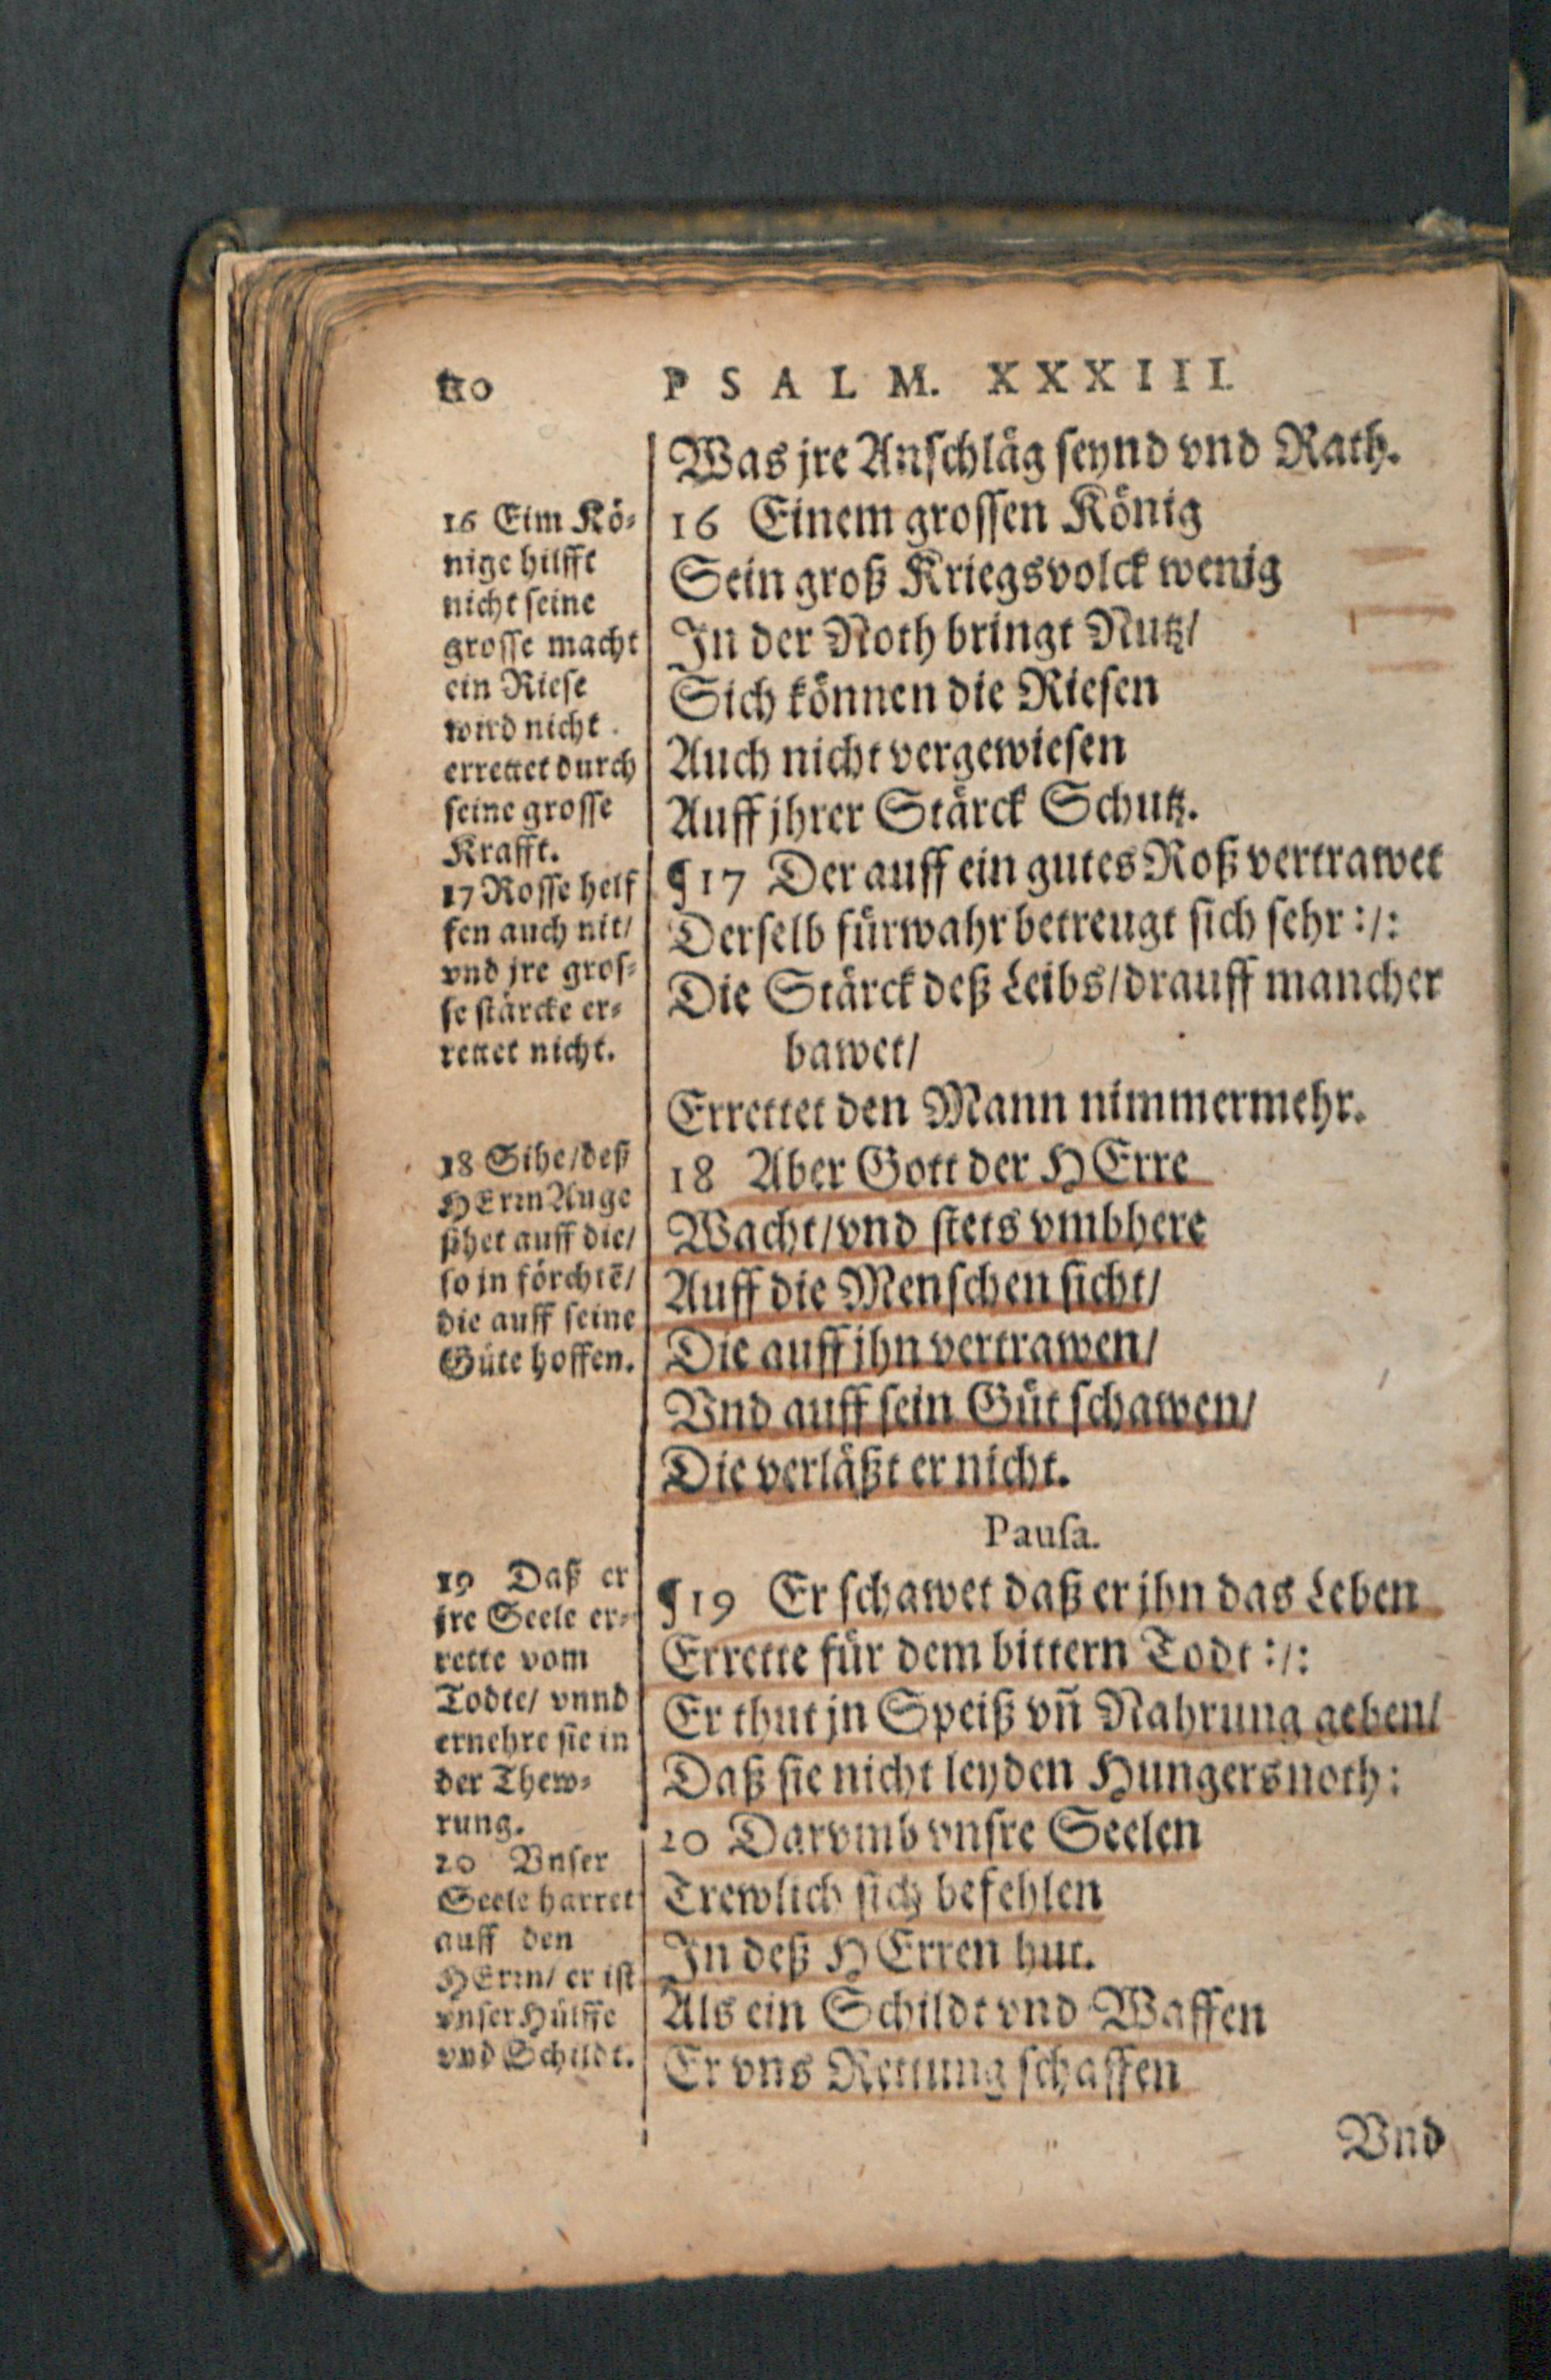 110
PSALM. XXXIII.
16 Eim Kö⸗
nige hilfft
nicht seine
grosse macht
ein Riese
wird nicht
errettet durch
seine grosse
Krafft.
17 Rosse helf
fen auch nit/
vnd jre gros⸗
se stärcke er⸗
rettet nicht.
18 Sihe/deß
HErrn Auge
sihet auff die/
so jn förchtē/
die auff seine
Güte hoffen.
19 Daß er
jre Seele er⸗
rette vom
Todte/ vnnd
ernehre sie in
der Thew⸗
rung.
20 Vnser
Seele harret
auff den
HErrn/ er ist
vnser Hülffe
vnd Schildt.
Was jre Anschläg seynd vnd Rath.
16 Einem grossen König
Sein groß Kriegsvolck wenig
In der Noth bringt Nutz/
Sich können die Riesen
Auch nicht vergewiesen
Auff jhrer Stärck Schutz.
¶17 Der auff ein gutes Roß vertrawet
Derselb fürwahr betreugt sich sehr :/:
Die Stärck deß Leibs/drauff mancher
bawet/
Errettet den Mann nimmermehr.
18 Aber Gott der HErre
Wacht/vnd stets vmbhere
Auff die Menschen sicht/
Die auff jhn vertrawen/
Vnd auff sein Güt schawen/
Die verläßt er nicht.
Pausa.
¶19 Er schawet daß er jhn das Leben
Errette für dem bittern Todt :/:
Er thut jn Speiß vñ Nahrung geben/
Daß sie nicht leyden Hungersnoth:
20 Darvmb vnsre Seelen
Trewlich sich befehlen
In deß HErren hut.
Als ein Schildt vnd Waffen
Er vns Rettung schaffen
Vnd